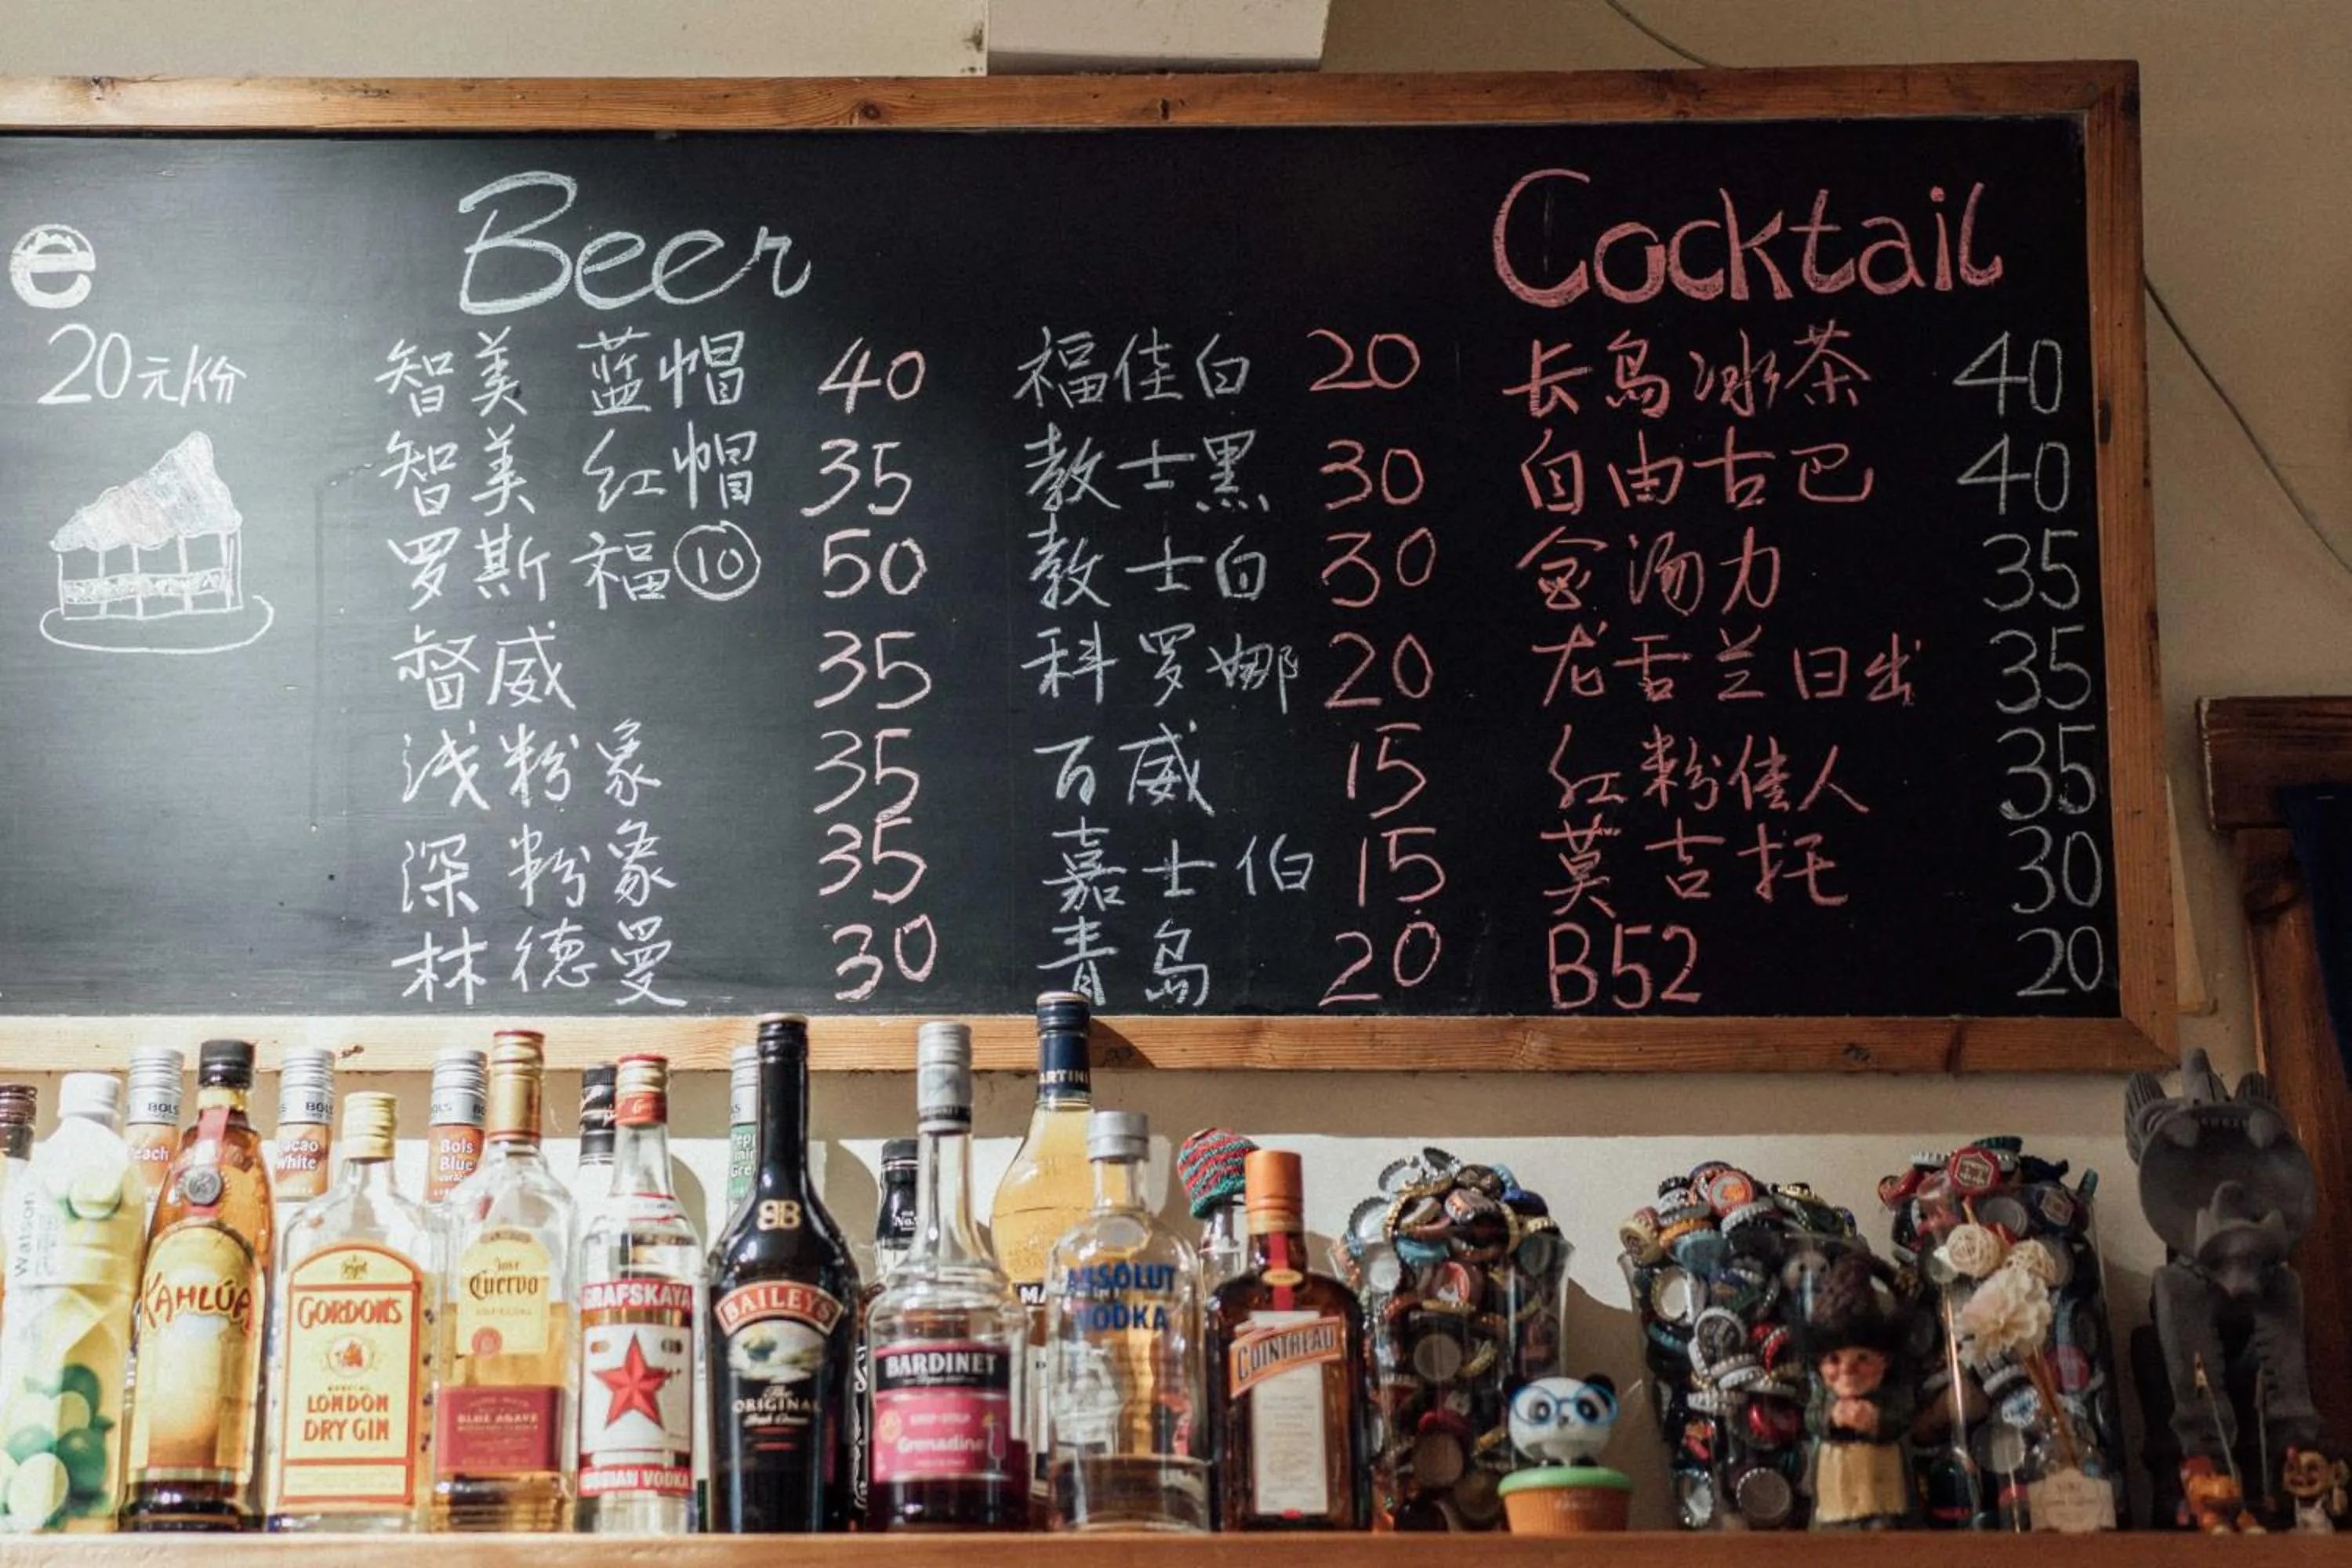 e
20元/份
Beer
智美 蓝帽 40
智美 红帽 35
罗斯福⑩ 50
督威 35
浅粉象 35
深粉象 35
林德曼 30
福佳白 20
教士黑 30
教士白 30
科罗娜 20
百威 15
嘉士伯 15
青岛 20
Cocktail
长岛冰茶 40
自由古巴 40
金汤力 35
龙舌兰日出 35
红粉佳人 35
莫吉托 30
B52 20
Watson
KAHLÚA
BOLS
Peach
GORDON'S
SPECIAL
LONDON
DRY GIN
BOLS
Cacao
White
Bols
Blue
Jose
Cuervo
BLUE AGAVE
GRAFSKAYA
RUSSIAN VODKA
BAILEYS
The
ORIGINAL
Irish Cream
BARDINET
Grenadine
MARTINI
ABSOLUT
VODKA
COINTREAU